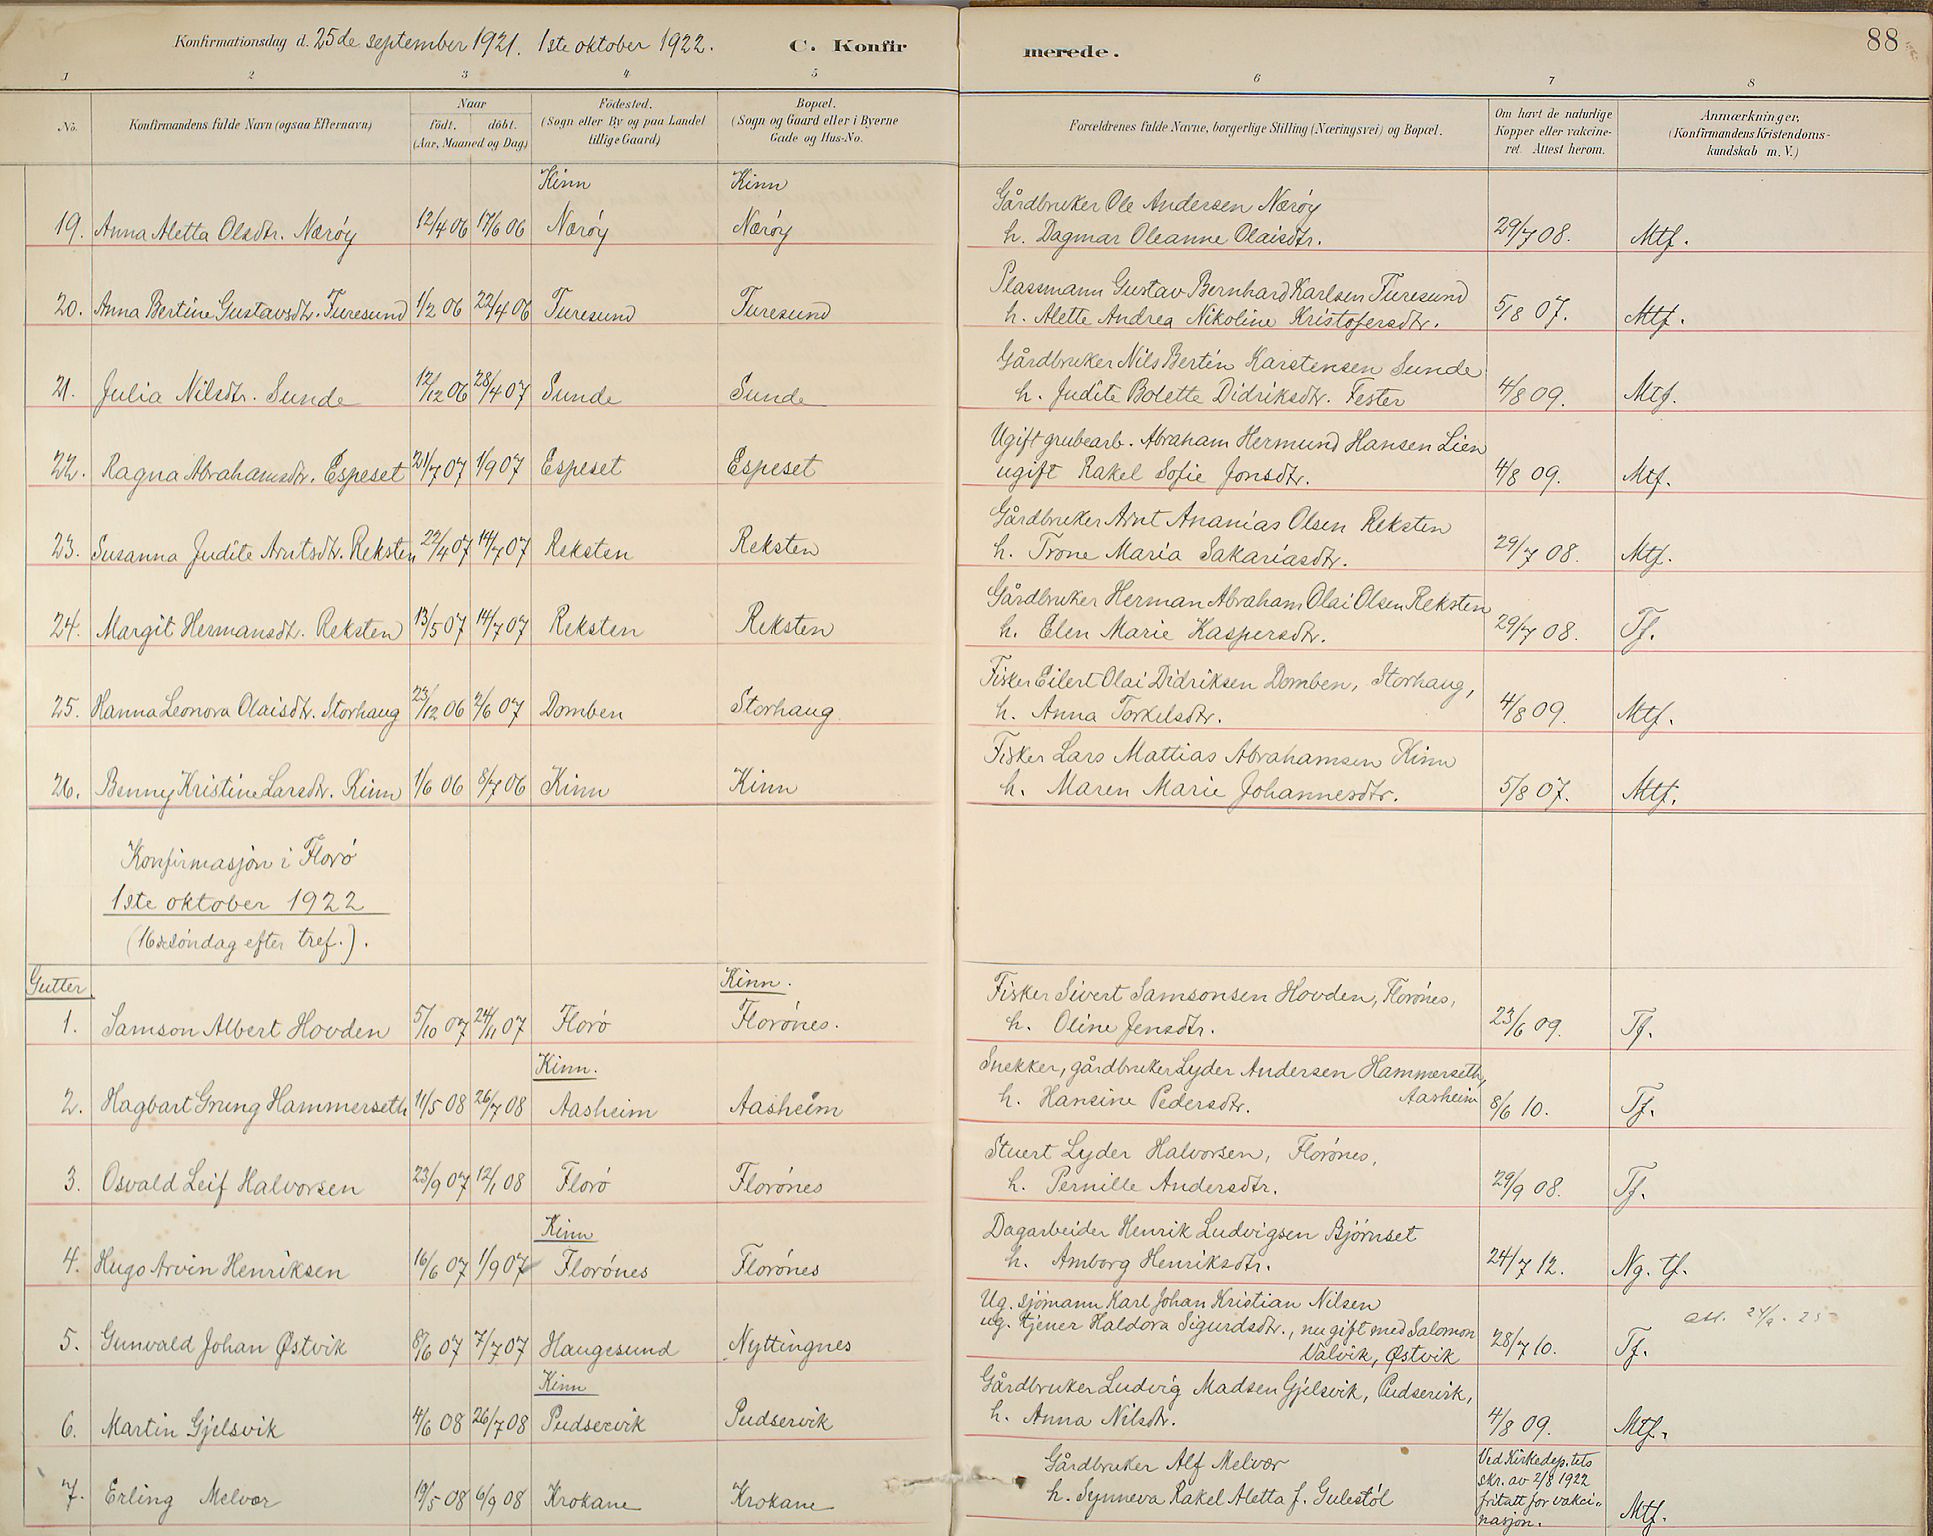 Konfirmationsdag d. 25de september 1921. 1ste oktober 1922. C. Konfirmerede. 88
1 2 3 4 5 6 7 8
No. Konfirmandens fulde Navn (ogsaa Efternavn) Naar født. døbt. (Aar, Maaned og Dag) Födested. (Sogn eller By og paa Landet tillige Gaard) Bopæl. (Sogn og Gaard eller i Byerne Gade og Hus-No. Forældrenes fulde Navne, borgerlige Stilling (Næringsvei) og Bopæl. Om havt de naturlige Kopper eller vakcineret. Attest herom. Anmærkninger. (Konfirmandens Kristendomskundskab m. V.)
Kinn Kinn
19. Anna Aletta Olsdtr. Nærøy 12/4 06 17/6 06 Nærøy Nærøy Gårdbruker Ole Andersen Nærøy
h. Dagmar Oleanne Olaisdtr. 29/7 08. Mtf.
20. Anna Bertine Gustavsdtr. Furesund 1/2 06 22/4 06 Furesund Furesund Plassmann Gustav Bernhard Karlsen Furesund
h. Alette Andrea Nikoline Kristofersdtr. 5/8 07. Mtf.
21. Julia Nilsdtr. Sunde 12/12 06 28/4 07 Sunde Sunde Gårdbruker Nils Bertin Karstensen Sunde
h. Judite Bolette Didriksdtr. Fester 4/8 09. Mtf.
22. Ragna Abrahamsdtr. Espeset 21/7 07 1/9 07 Espeset Espeset Ugift grubearb. Abraham Hermund Hansen Lien
ugift Rakel Sofie Jonsdtr. 4/8 09. Mtf.
23. Susanna Judite Arntsdtr. Reksten 22/4 07 14/7 07 Reksten Reksten Gårdbruker Arnt Ananias Olsen Reksten
h. Trone Maria Sakariasdtr. 29/7 08. Mtf.
24. Margit Hermansdtr. Reksten 13/5 07 14/7 07 Reksten Reksten Gårdbruker Herman Abraham Olai Olsen Reksten
h. Elen Marie Kaspersdtr. 29/7 08. Tf.
25. Hanna Leonora Olaisdtr. Storhaug 23/12 06 2/6 07 Domben Storhaug Fisker Eilert Olai Didriksen Domben, Storhaug,
h. Anna Torkelsdtr. 4/8 09. Mtf.
26. Benny Kristine Larsdtr. Kinn 1/6 06 8/7 06 Kinn Kinn Fisker Lars Mattias Abrahamsen Kinn
h. Maren Marie Johannesdtr. 5/8 07. Mtf.
Konfirmasjon i Florø
1ste oktober 1922
(16de søndag efter tref.).
Gutter. Kinn.
1. Samson Albert Hovden 5/10 07 24/11 07 Florø Florønes. Fisker Sivert Samsonsen Hovden, Florønes,
h. Oline Jensdtr. 23/6 09. Tf.
Kinn.
2. Hagbart Grung Hammerseth 11/5 08 26/7 08 Aasheim Aasheim Snekker, gårdbruker Lyder Andersen Hammerseth,
h. Hansine Pedersdtr. Aasheim 8/6 10. Tf.
3. Osvald Leif Halvorsen 23/9 07 12/1 08 Florø Florønes Stuert Lyder Halvorsen, Florønes,
h. Pernille Andersdtr. 29/9 08. Tf.
Kinn
4. Hugo Arvin Henriksen 16/6 07 1/9 07 Florønes Florønes Dagarbeider Henrik Ludvigsen Bjørnset
h. Amborg Henriksdtr. 24/7 12. Ng. tf.
5. Gunvald Johan Østvik 8/6 07 7/7 07 Haugesund Nyttingnes Ug. sjømann Karl Johan Kristian Nilsen
ug. tjener Haldora Sigurdsdtr., nu gift med Salomon
Valvik, Østvik 28/7 10. Tf.
Kinn
6. Martin Gjelsvik 4/6 08 26/7 08 Pudservik Pudservik Gårdbruker Ludvig Madsen Gjelsvik, Pudservik,
h. Anna Nilsdtr. 4/8 09. Mtf.
7. Erling Melvær 19/5 08 6/9 08 Krokane Krokane Gårdbruker Alf Melvær
h. Synneva Rakel Aletta f. Gulestøl Ved Kirkedep.tets
skr. av 2/8 1922
fritatt for vakci-
nasjon. Mtf.